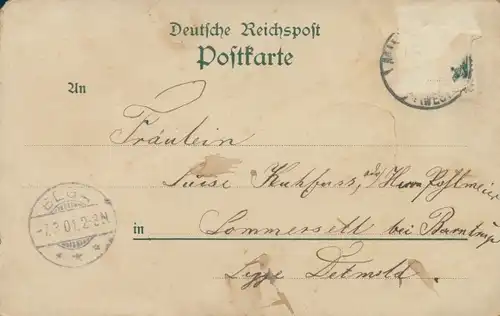 Deutsche Reichspost
Postkarte
An
Fräulein
Luise Kuhfuss, Herrn Postmeier
in Sommersell bei Barntrup
Lippe Detmold.
-7.3.01.2-3N